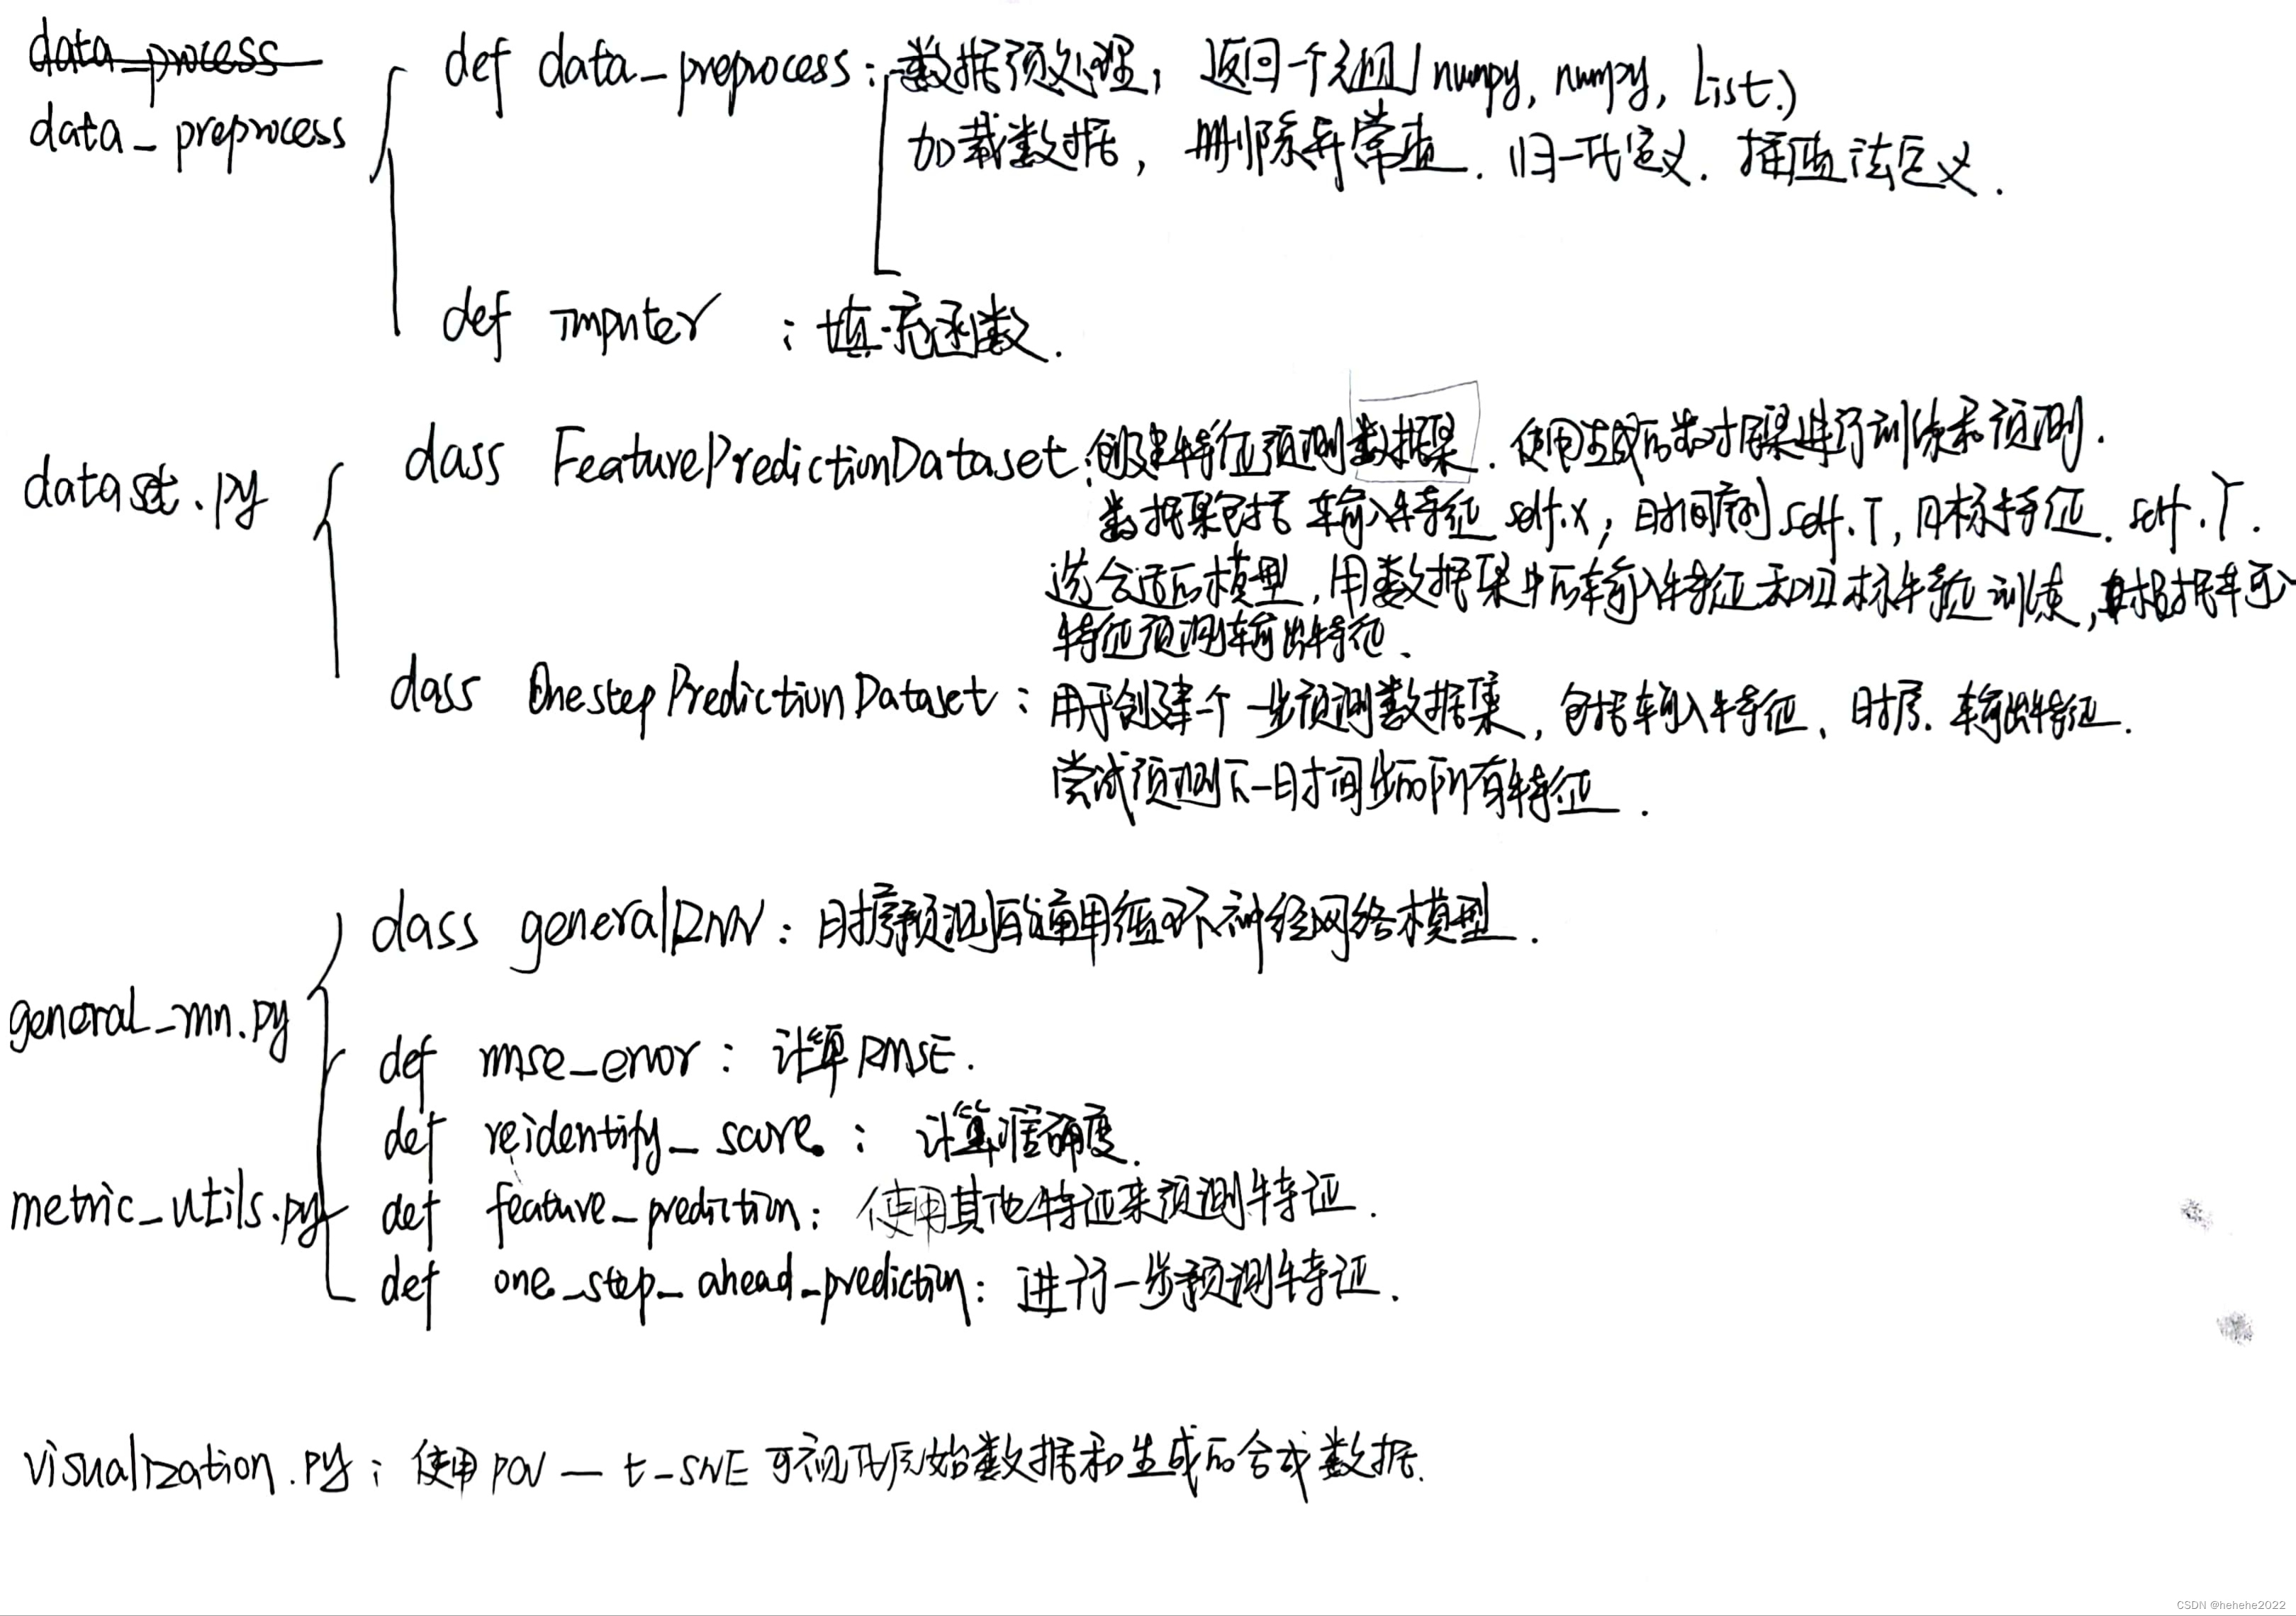 data_process
data_preprocess
def data_preprocess: 数据预处理, 返回一个元组(numpy, numpy, list.)
加载数据, 删除异常值. 归一化定义. 插值法定义.
def imputer : 填充函数.
dataset.py
class FeaturePredictionDataset: 创建特征预测数据集. 使用生成的数据集进行训练和预测.
数据集包括 输入特征 self.X, 时间序列 self.T, 目标特征. self.Y.
选合适的模型, 用数据集中的输入特征和目标特征训练, 根据
特征预测输出特征.
class OnestepPredictionDataset: 用于创建个一步预测数据集, 包括输入特征、时序. 输出特征.
尝试预测下一时间步的所有特征.
class generalRNN: 时序预测的通用循环神经网络模型.
general_rnn.py
def rmse_error: 计算RMSE.
def reidentify_score: 计算准确度.
metric_utils.py
def feature_prediction: 使用其他特证来预测特证.
def one_step_ahead_prediction: 进行一步预测特证.
visualization.py: 使用 — t-SNE 可视化原始数据和生成的合成数据.
CSDN @hehehe2022